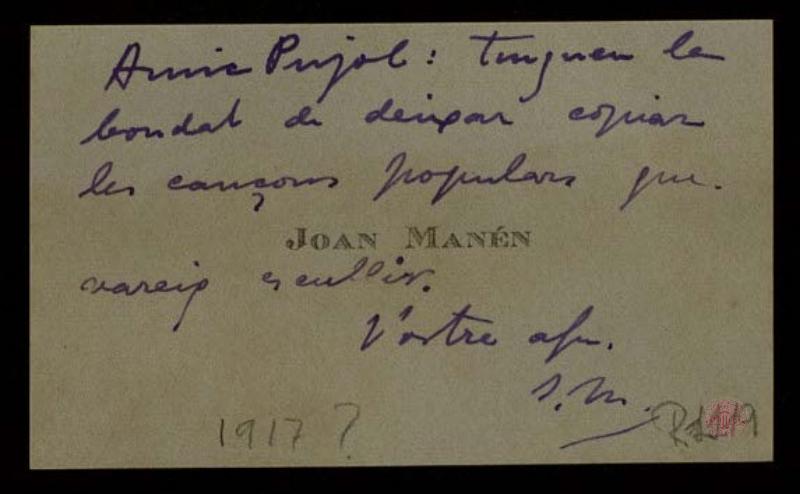 Amic Pujol: tingueu la
bondat de deixar copiar
les cançons populars que
JOAN MANÉN
vareig escullir.
Vostre afm.
J. M.
1917?